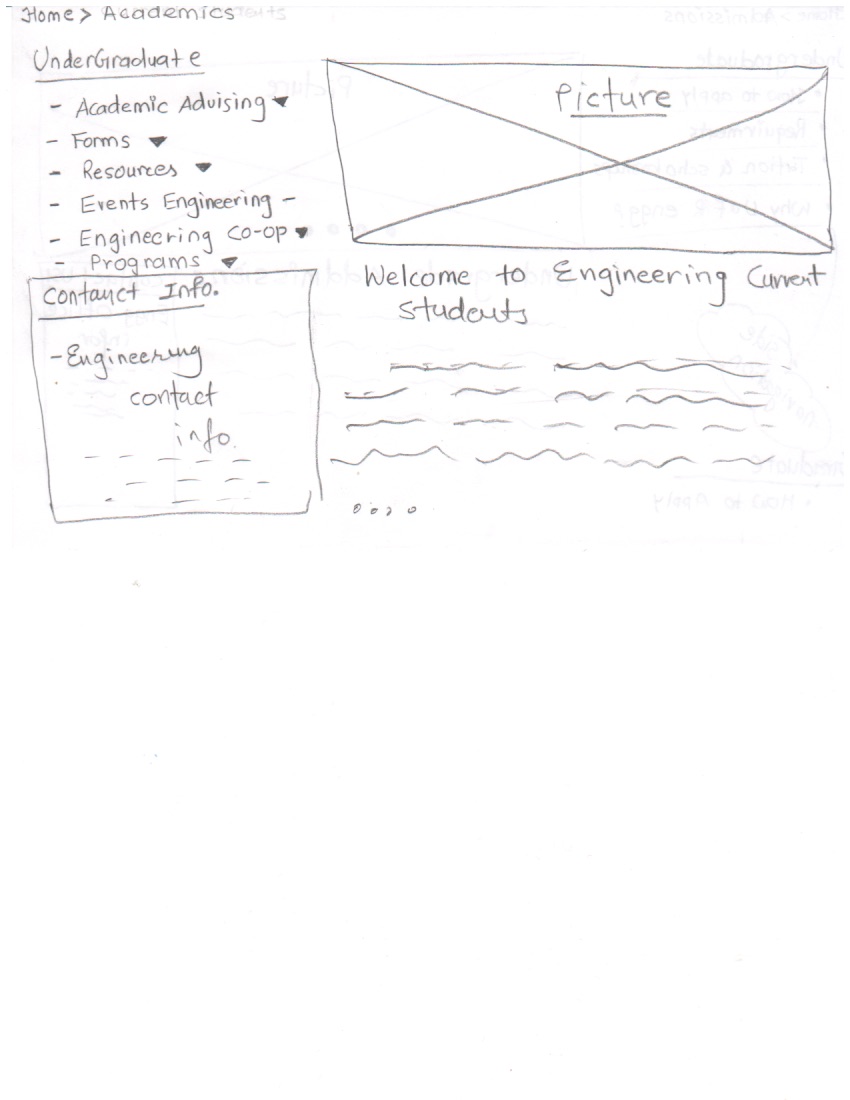 Home > Academics
UnderGraduate
- Academic Advising ▼
- Forms ▼
- Resources ▼
- Events Engineering -
- Engineering CO-OP ▼
- Programs ▼
Contauct Info.
- Engineering
contact
info.
Picture
Welcome to Engineering Current
Students